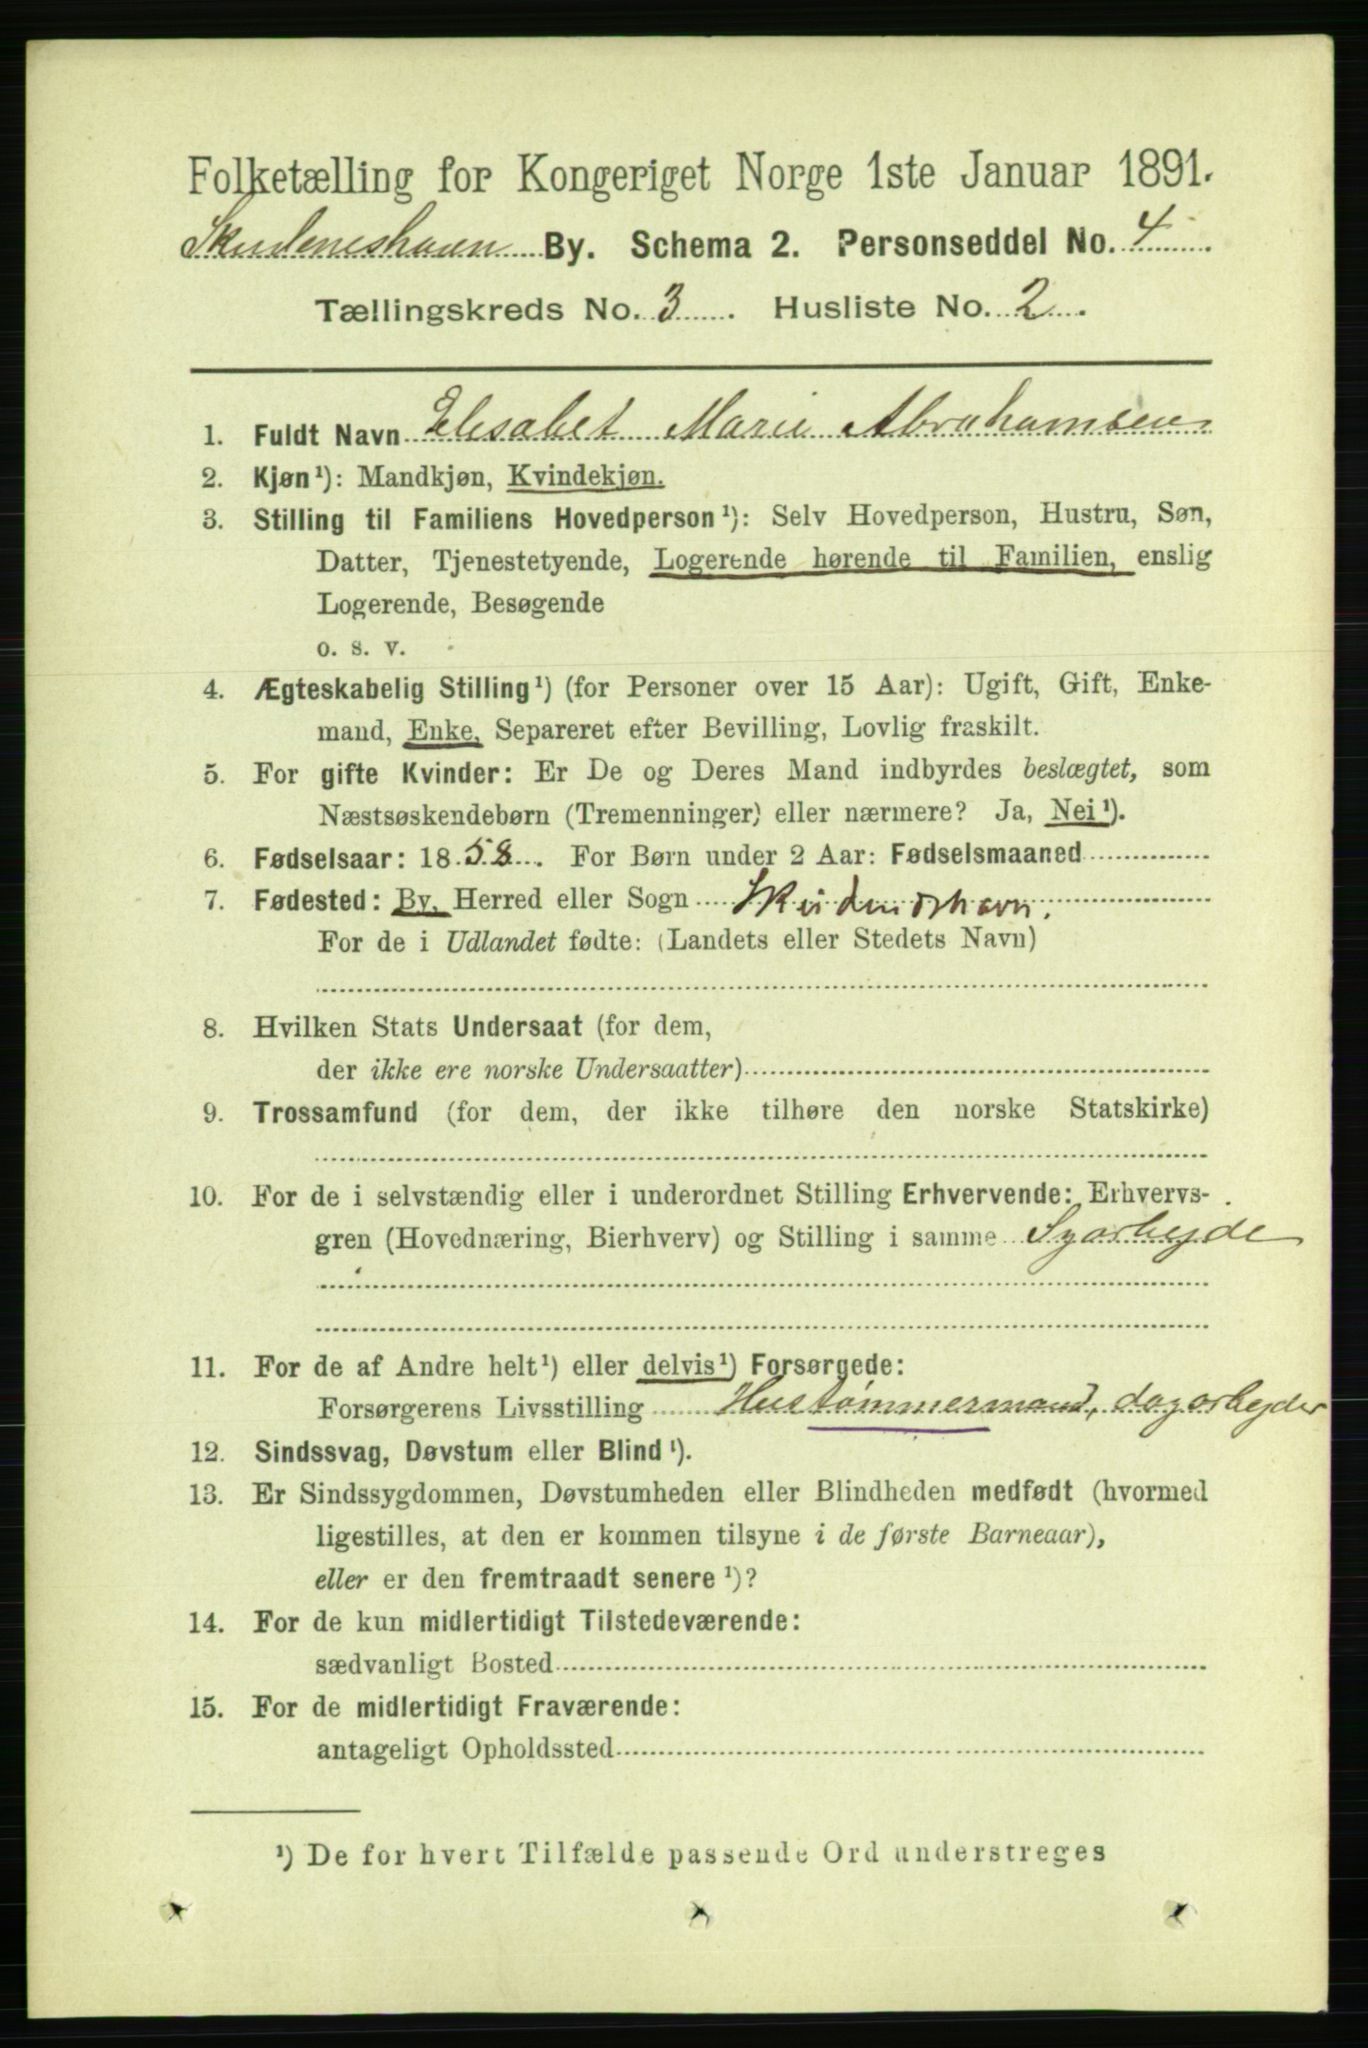 Folketælling for Kongeriget Norge 1ste Januar 1891.
Skudeneshavn By. Schema 2. Personseddel No. 4
Tællingskreds No. 3. Husliste No. 2.
1. Fuldt Navn Elisabet Marie Abrahamsen
2. Kjøn ¹): Mandkjøn, Kvindekjøn.
3. Stilling til Familiens Hovedperson ¹): Selv Hovedperson, Hustru, Søn,
Datter, Tjenestetyende, Logerende hørende til Familien, enslig
Logerende, Besøgende
o. s. v.
4. Ægteskabelig Stilling ¹) (for Personer over 15 Aar): Ugift, Gift, Enke-
mand, Enke, Separeret efter Bevilling, Lovlig fraskilt.
5. For gifte Kvinder: Er De og Deres Mand indbyrdes beslægtet, som
Næstsøskendebørn (Tremenninger) eller nærmere? Ja, Nei ¹).
6. Fødselsaar: 1858. For Børn under 2 Aar: Fødselsmaaned
7. Fødested: By, Herred eller Sogn Skudeneshavn.
For de i Udlandet fødte: (Landets eller Stedets Navn)
8. Hvilken Stats Undersaat (for dem,
der ikke ere norske Undersaatter)
9. Trossamfund (for dem, der ikke tilhøre den norske Statskirke)
10. For de i selvstændig eller i underordnet Stilling Erhvervende: Erhvervs-
gren (Hovednæring, Bierhverv) og Stilling i samme Syarbejde
11. For de af Andre helt ¹) eller delvis ¹) Forsørgede:
Forsørgerens Livsstilling Hustømmermand, dagarbejder
12. Sindssvag, Døvstum eller Blind ¹).
13. Er Sindssygdommen, Døvstumheden eller Blindheden medfødt (hvormed
ligestilles, at den er kommen tilsyne i de første Barneaar),
eller er den fremtraadt senere ¹)?
14. For de kun midlertidigt Tilstedeværende:
sædvanligt Bosted
15. For de midlertidigt Fraværende:
antageligt Opholdssted
¹) De for hvert Tilfælde passende Ord understreges